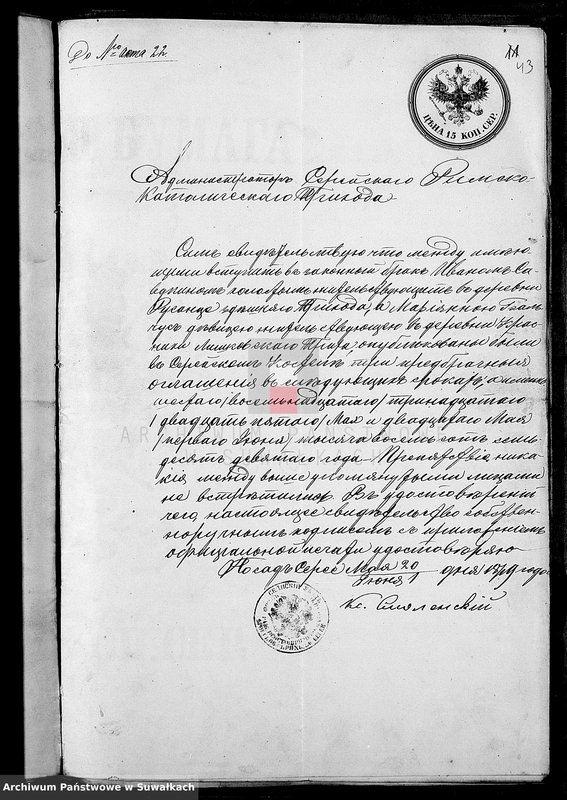 До №го акта 22.
43
ЦѢНА 15 КОП. СЕР.
Администраторъ Серейскаго Римско-
Католическаго Прихода
Симъ свидѣтельствую что между имею-
щими вступить въ законный бракъ Иваномъ
холостымъ жительствующимъ въ деревни
здѣшняго Прихода, а Маріянною
дѣвицею жительствующею въ деревни
Прихода, опубликованы были
въ Сереискомъ Костелѣ три предбрачныя
оглашенія въ слѣдующихъ срокахъ, а именно
шестаго / восемьнадцатаго / тринадцатаго
/ двадцать пятаго / Мая и двадцатаго Мая
/ перваго Іюня / тысяча восемь сотъ семь-
десятъ девятаго года – Препятствія ника-
кія между выше упомянутыми лицами
не встрѣтились. Въ удостовѣреніи
чего, настоящее свидѣтельство собствен-
норучнымъ подписомъ съ приложеніемъ
оффиціальной печати удостовѣряю
Посадъ Сереѣ Мая 20 / Іюня 1 дня 1879 года
Кс.
Archiwum Państwowe w Suwałkach